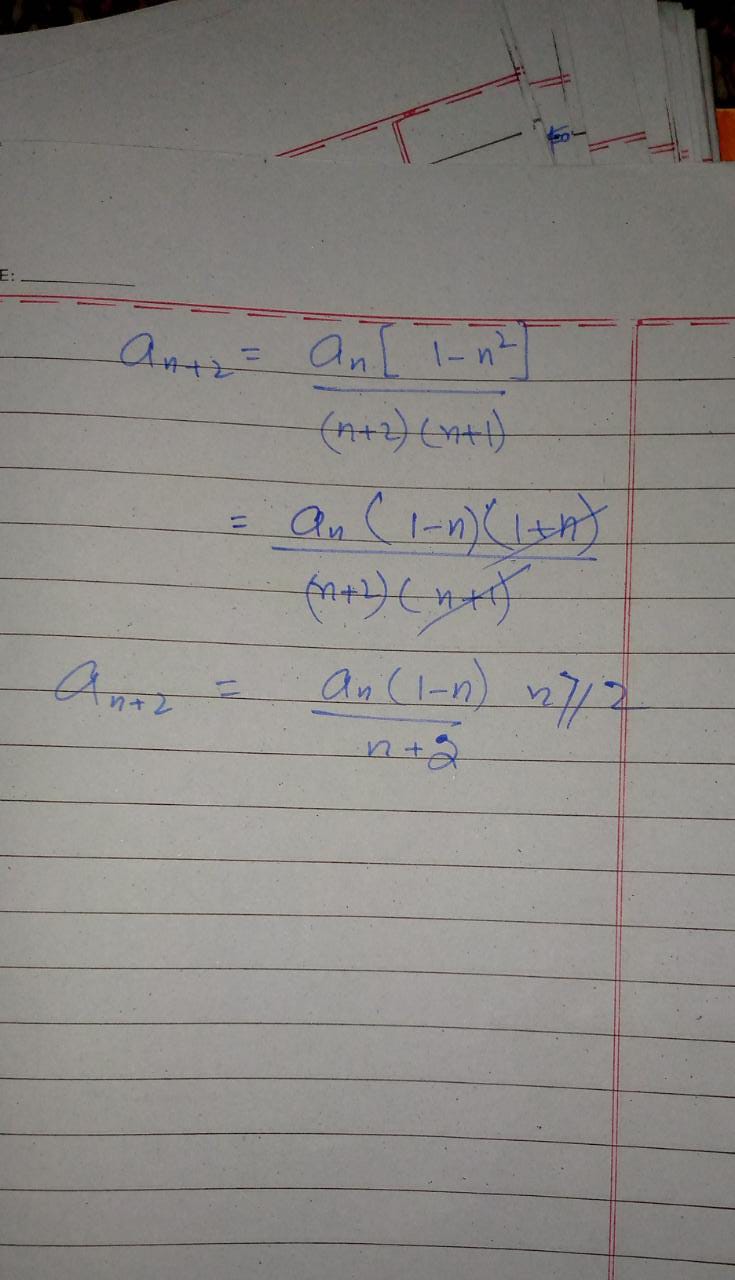 E:
a_{n+2} = a_n [ 1-n² ] / (n+2) (n+1)
= a_n ( 1-n) (1+n) / (n+2) ( n+1)
a_{n+2} = a_n (1-n) / n+2 n ⩾ 2